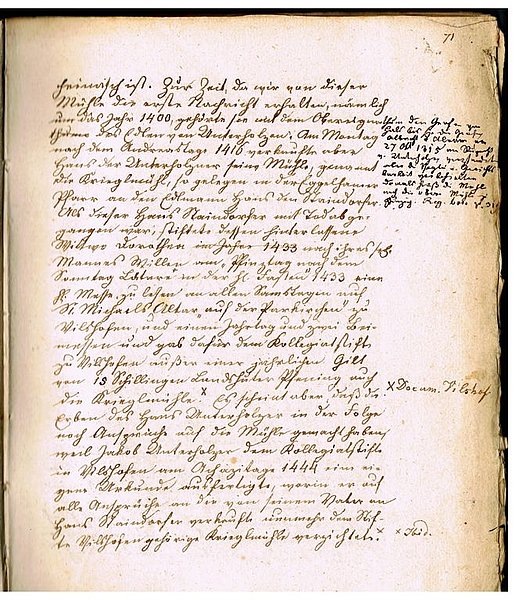 71
heimisch ist. Zur Zeit, da wir von dieser
Mühle die erste Nachricht erhalten, nämlich
um das Jahr 1400, gehörte sie zu dem Obereigen-
thume des Edlen von Unterholzen. Am Montag
nach dem Andreastage 1416 verkaufte aber
Hans der Unterholzner seine Mühle, genannt
die Krieglmühl, so gelegen in der Egglhamer
Pfarr an den Edlmann Hans den Staindorfer.
Als dieser Hans Staindorfer mit Todabge-
gangen war, stiftete dessen hinterlassene
Wittwe Dorothea im Jahre 1433 nach ihres sel.
Mannes Willen am Pfinztag nach dem
Sonntag Lätare in der hl. Fasten 1433 eine
hl. Messe zu lesen an allen Samstagen auf
St. Michaels Altar auf der Pfarkirchen zu
Vilshofen, und einen Jahrtag und zwei Bei-
messen und gab dafür dem Kollegiatstifte
zu Vilshofen außer einer jährlichen Gilt
von 15 Schillingen Landshuter Pfening auch
die Krieglmühle. x Es scheint aber, daß die
Erben des Hans Unterholzer in der Folge
noch Ansprüche auf die Mühle gemacht haben,
weil Jakob Unterholzer dem Kollegiatstifte
in Vilshofen am Achazitage 1444 eine ei-
gene Urkunde ausfertigte, worin er auf
alle Ansprüche an die von seinem Vater an
Hans Staindorfer verkaufte nunmehr dem Stif-
te Vilshofen gehörige Krieglmühle verzichtete. x
x Docum. Vilshof.
x Ibid.